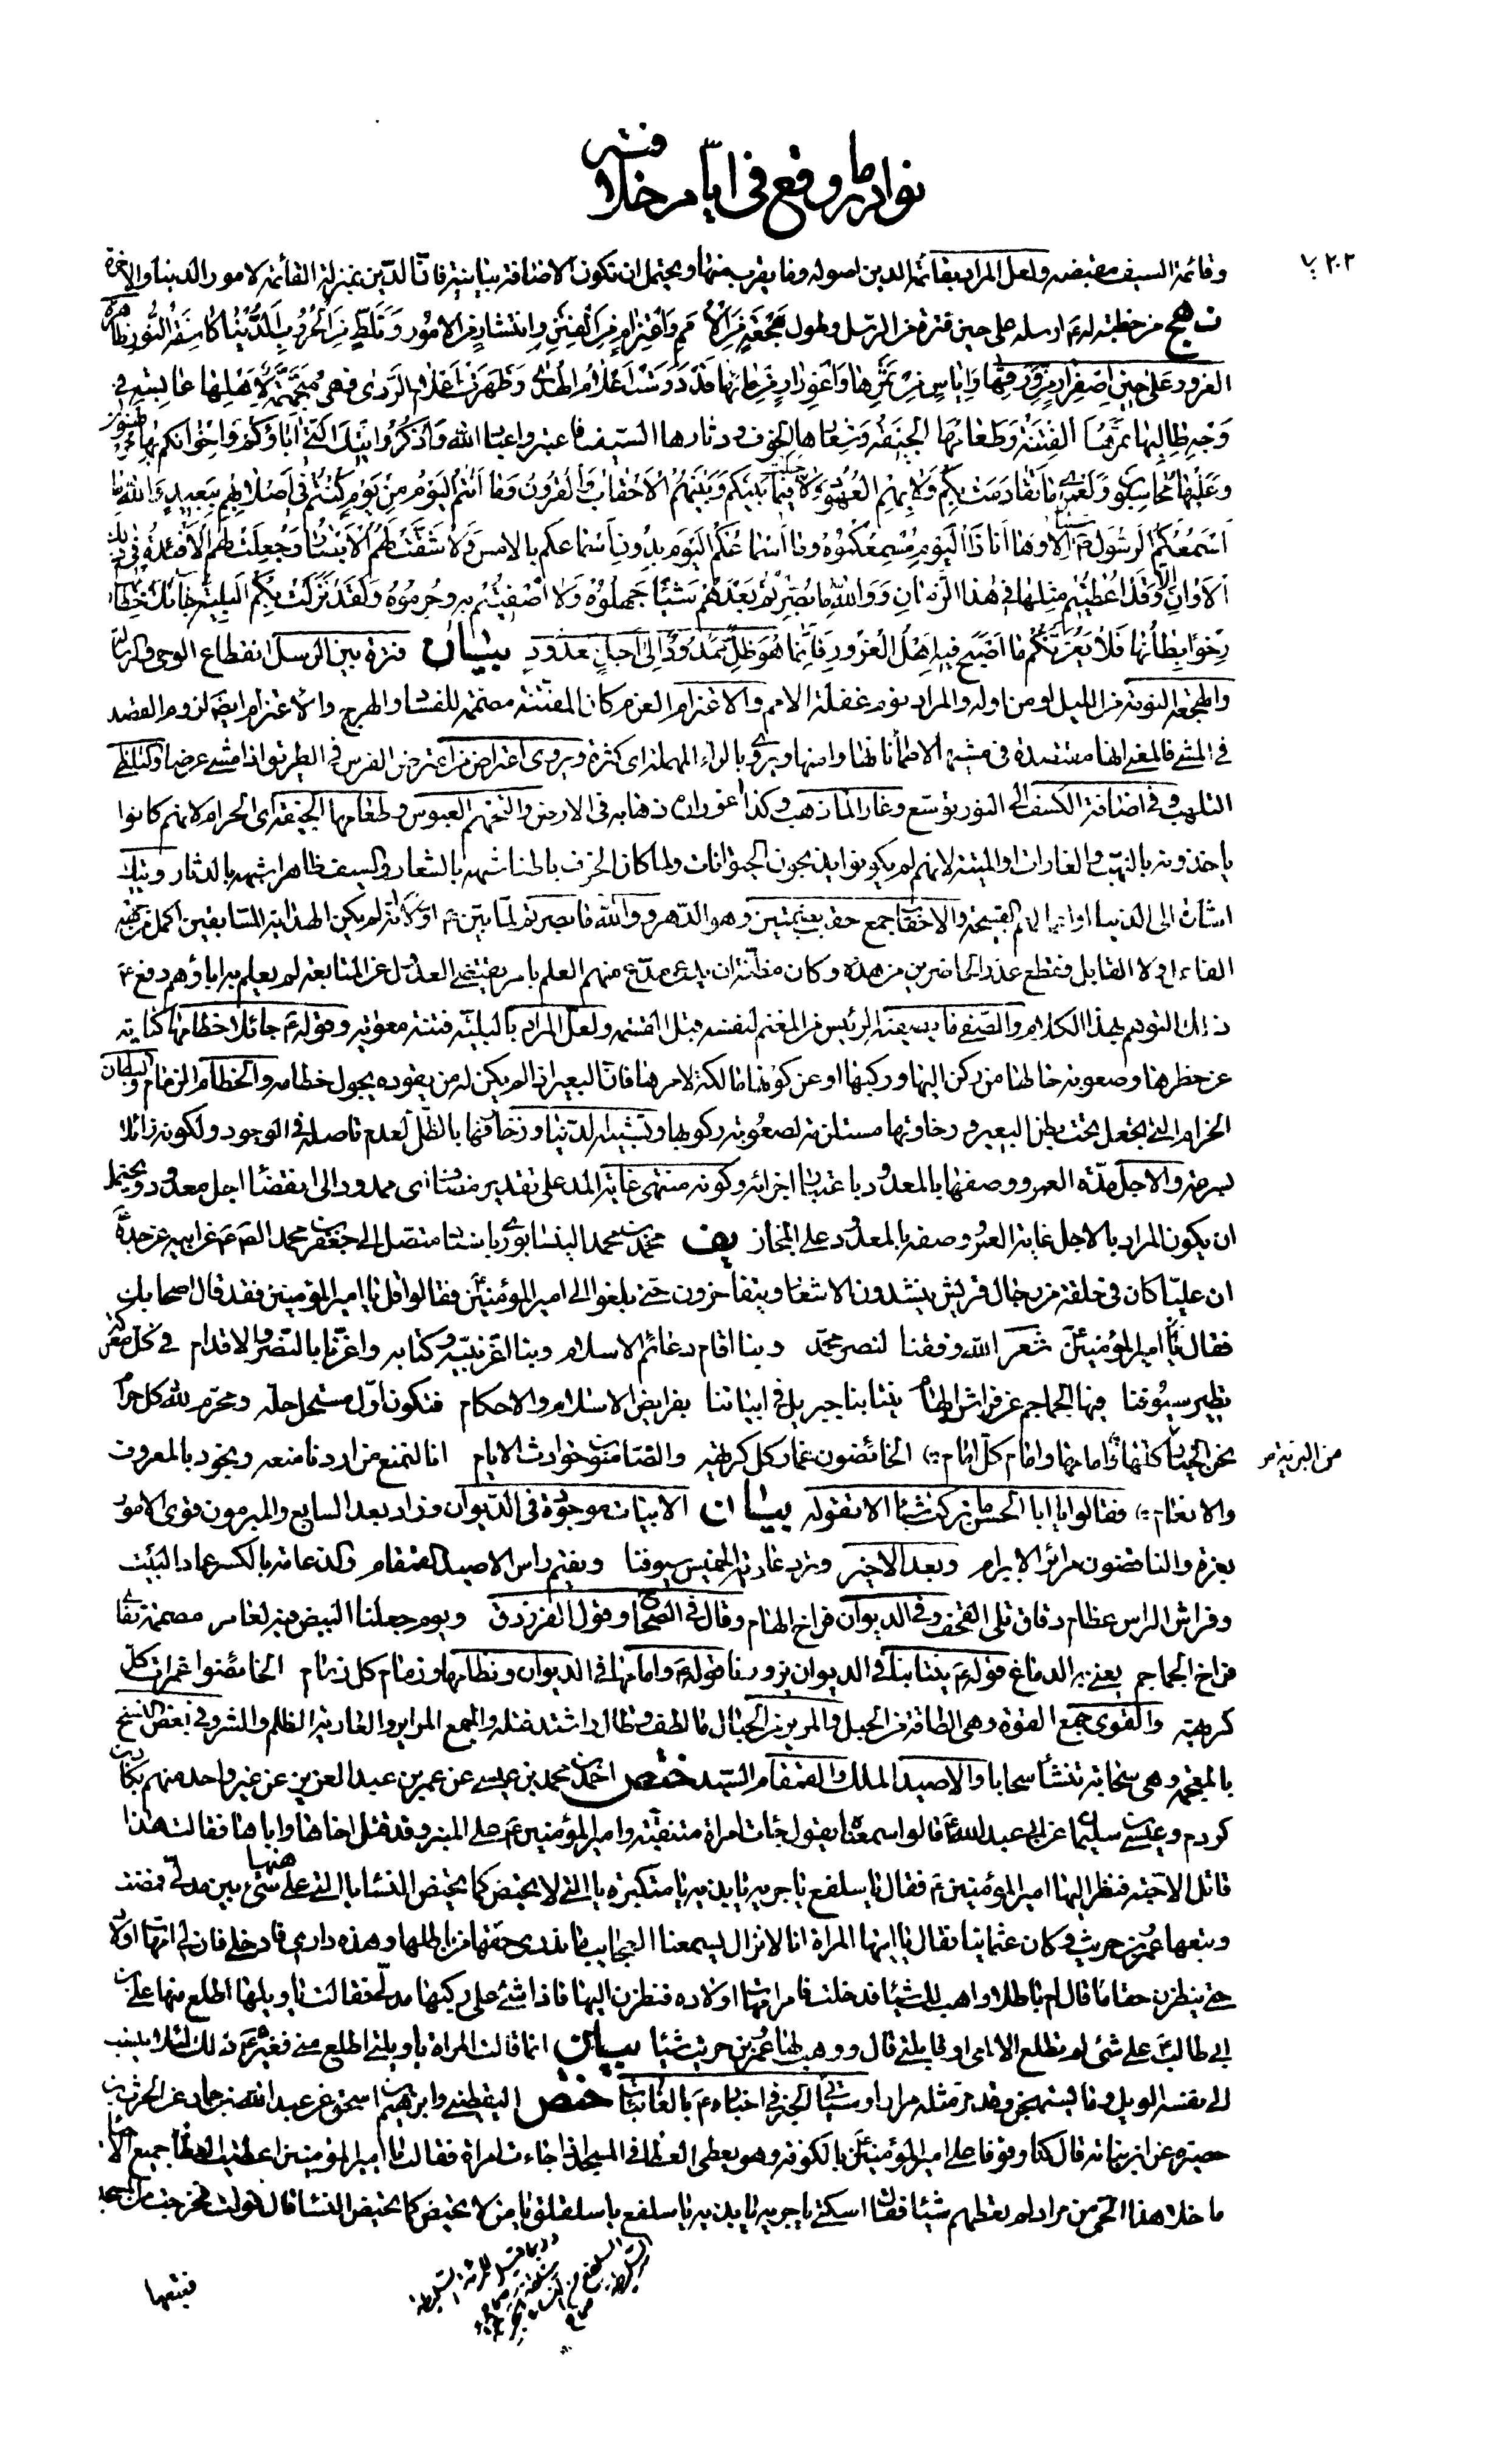 نوادر ما وقع في ايام خلافته
٢٠٢ يا
وقائمة السيف مقبضه ولعل المراد بقائمة الدين اصوله وما يقرب منها ويحتمل ان تكون الاضافة بيانية فان الدين بمنزلة القائمة لامور الدنيا والاخرة
نهج من خطبة له ع ارسله على حين فترة من الرسل وطول هجعة من الامم واعتزام من الفتن وانتشار من الامور وتلظ من الحروب والدنيا كاسفة النور ظاهرة
الغرور على حين اصفرار من ورقها واياس من ثمرها واغورار من مائها قد درست اعلام الهدى وظهرت اعلام الردى فهي متجهمة لاهلها عابسة في
وجه طالبها ثمرها الفتنة وطعامها الجيفة وشعارها الخوف ودثارها السيف فاعتبروا عباد الله واذكروا تيك التي اباؤكم واخوانكم بها مرتهنون
وعليها محاسبون ولعمري ما تقادمت بكم ولا بهم العهود ولا خلت فيما بينكم وبينهم الاحقاب والقرون وما انتم اليوم من يوم كنتم في اصلابهم ببعيد والله ما
اسمعكم الرسول شيئا الا وها انا ذا اليوم مسمعكموه وما اسماعكم اليوم بدون اسماعكم بالامس ولا شقت لهم الابصار وجعلت لهم الافئدة في ذلك
الاوان الا وقد اعطيتم مثلها في هذا الزمان ووالله ما بصرتم بعدهم شيئا جهلوه ولا اصفيتم به وحرموه ولقد نزلت بكم البلية جائلا خطامها
رخوا بطانها فلا يغرنكم ما اصبح فيه اهل الغرور فانما هو ظل ممدود الى اجل معدود بيان فترة بين الرسل انقطاع الوحي والرسالة
والهجعة النومة من الليل او من اوله والمراد نوم غفلة الامم والاعتزام العزم كان الفتنة مصممة للفساد والهرج والاعتزام ايضا لزوم القصد
في المشي فالمعنى انها مقتصدة في مشيها لاطمأنانها وامنها ويروى بالراء المهملة اي كثرة ويروى اعتراض من اعترض الفرس في الطريق اذا مشى عرضا والتلظي
التلهب وفي اضافة الكسف الى النور توسع وغار الماء ذهب وكذا اغوراره ذهابه في الارض والتجهم العبوس وطعامها الجيفة اي الحرام لانهم كانوا
ياخذونه بالنهب والغارات او الميتة لانهم لم يكونوا يذبحون الحيوانات ولما كان الخوف باطنا شبهه بالشعار والسيف ظاهرا شبهه بالدثار وتيك
اشارة الى الدنيا او اعمالهم القبيحة والاحقاب جمع حقب بضمتين وهو الدهر ووالله ما بصرتم لما بين ع اولا انه لم يكن الهداية للسابقين اكمل من جهة
الفاعل ولا القابل فقطع عذر الحاضرين من هذه وكان مظنة ان يدعي مدع منهم العلم بامر يقتضي العدول عن المتابعة لم يعلم به اباؤهم دفع ع
ذلك التوهم بهذا الكلام والصفي ما يصفيه الرئيس من المغنم لنفسه قبل القسمة ولعل المراد بالبلية فتنة معوية وقوله ع جائلا خطامها كناية
عن خطرها وصعوبة حال من ركن اليها وركبها او عن كونها مالكة لامرها فان البعير اذا لم يكن له من يقوده يجول خطامه والخطام الزمام والبطان
الحزام التي تجعل تحت بطن البعير ورخاوتها مستلزمة لصعوبة ركوبها وتشبيه الدنيا وزخارفها بالظل لعدم تاصله في الوجود ولكونه زائلا
بسرعة والاجل مدة العمر ووصفها بالمعدود باعتبار اجزائه وكونه منتهى غاية المد على تقدير مضاف اي ممدود الى انقضاء اجل معدود ويحتمل
ان يكون المراد بالاجل غاية العمر وصفه بالمعدود على المجاز يف محمد بن محمد النيسابوري باسناد متصل الى جعفر بن محمد الصم عن ابيه عن جده
ان عليا كان في حلقة من رجال قريش ينشدون الاشعار ويتفاخرون حتى بلغوا الى امير المؤمنين فقالوا قل يا امير المؤمنين فقد قال اصحابك
فقال امير المؤمنين شعر الله وفقنا لنصر محمد وبنا اقام دعائم الاسلام وبنا اعز نبيه وكتابه واعزنا بالنصر والاقدام في كل معركة
تطير سيوفنا فيها الجماجم عن فراش الهام ينتابنا جبريل في ابياتنا بفرايض الاسلام والاحكام فنكون اول مستحل حله ومحرم لله كل حرام
من البرية م
نحن الخيار كلها وامامها وامام كل امام الخائضون غمار كل كريهة والضامنون حوادث الايام انا لنمنع من اردنا منعه ونجود بالمعروف
والانعام فقالوا يا ابا الحسن ما تركت شيئا الا تقوله بيان الابيات موجودة في الديوان وزاد بعد السابع والمبرمون قوى الامور
بعزة والناقضون مرائر الابرام وبعد الاخير وترد عادية الخميس سيوفنا ونقيم راس الاصيد القمقام والدعامة بالكسر عماد البيت
وفراش الراس عظام دقاق تلي القحف وفي الديوان فراخ الهام وقال في الصحاح وقول الفرزدق ويوم جعلنا البيض فيه لعامر مصممة تفاى
فراخ الجماجم يعني به الدماغ قوله ع ينتابنا في الديوان يزورنا قوله وامامها في الديوان ونظامها وزمام كل زمام الخائضوا غمرات كل
كريهة والقوى جمع القوة وهي الطاقة من الحبل والمرير من الحبال ما لطف وطال واشتد فتله والجمع المراير والعادية الظلم والشر وفي بعض النسخ
بالمعجمة وهي سحابة تنشأ سحابا والاصيد الملك والقمقام السيد ختص احمد بن محمد بن عيسى عن عمر بن عبد العزيز عن غير واحد منهم بكار بن
كردم وعيسى بن سليمان عن ابي عبد الله قالوا سمعناه يقول جاءت امراة متنقبة وامير المؤمنين ع على المنبر وقد قتل اخاها واباها فقالت هذا
قاتل الاحبة فنظر اليها امير المؤمنين ع فقال يا سلفع يا جرية يا بذية يا متكبرة يا التي لا تحيض كما تحيض النساء يا التي على هنها شيء بين مدلى فمضت
وتبعها عمرو بن حريث وكان عثمانيا فقال يا ايتها المراة انا لا نزال يسمعنا العجايب فما ندري حقها من باطلها وهذه داري فادخلي فان لي امهات اولاد
حتى ينظرن حقا ما قال ام باطلا واهب لك شيئا فدخلت فامر امهات اولاده فنظرن اليها فاذا شيء على ركبها مدلى فقالت يا ويلها اطلع منها علي بن
ابي طالب على شيء لم تطلع الا امي او قابلتي قال ووهب لها عمرو بن حريث شيئا بيان انما قالت المراة يا ويلتي اطلع مني فغيره ع ذلك لئلا ينسب
الى نفسه الويل وما يستهجن وقد مر مثله مرارا وسياتي الخبر في اخباره ع بالغائبات ختص اليقطيني وابرهيم بن اسحق عن عبد الله بن حماد عن الحرث بن
حصيرة عن ابن نباتة قال كنا وقوفا على امير المؤمنين بالكوفة وهو يعطي العطا في المسجد اذ جاءت امراة فقالت يا امير المؤمنين اعطيت العطا جميع الاحياء
ما خلا هذا الحي من مراد لم تعطهم شيئا فقال اسكتي يا جرية يا بذية يا سلفع يا سلقلق يا من لا تحيض كما تحيض النساء قال فولت فخرجت من المسجد
فتبعها